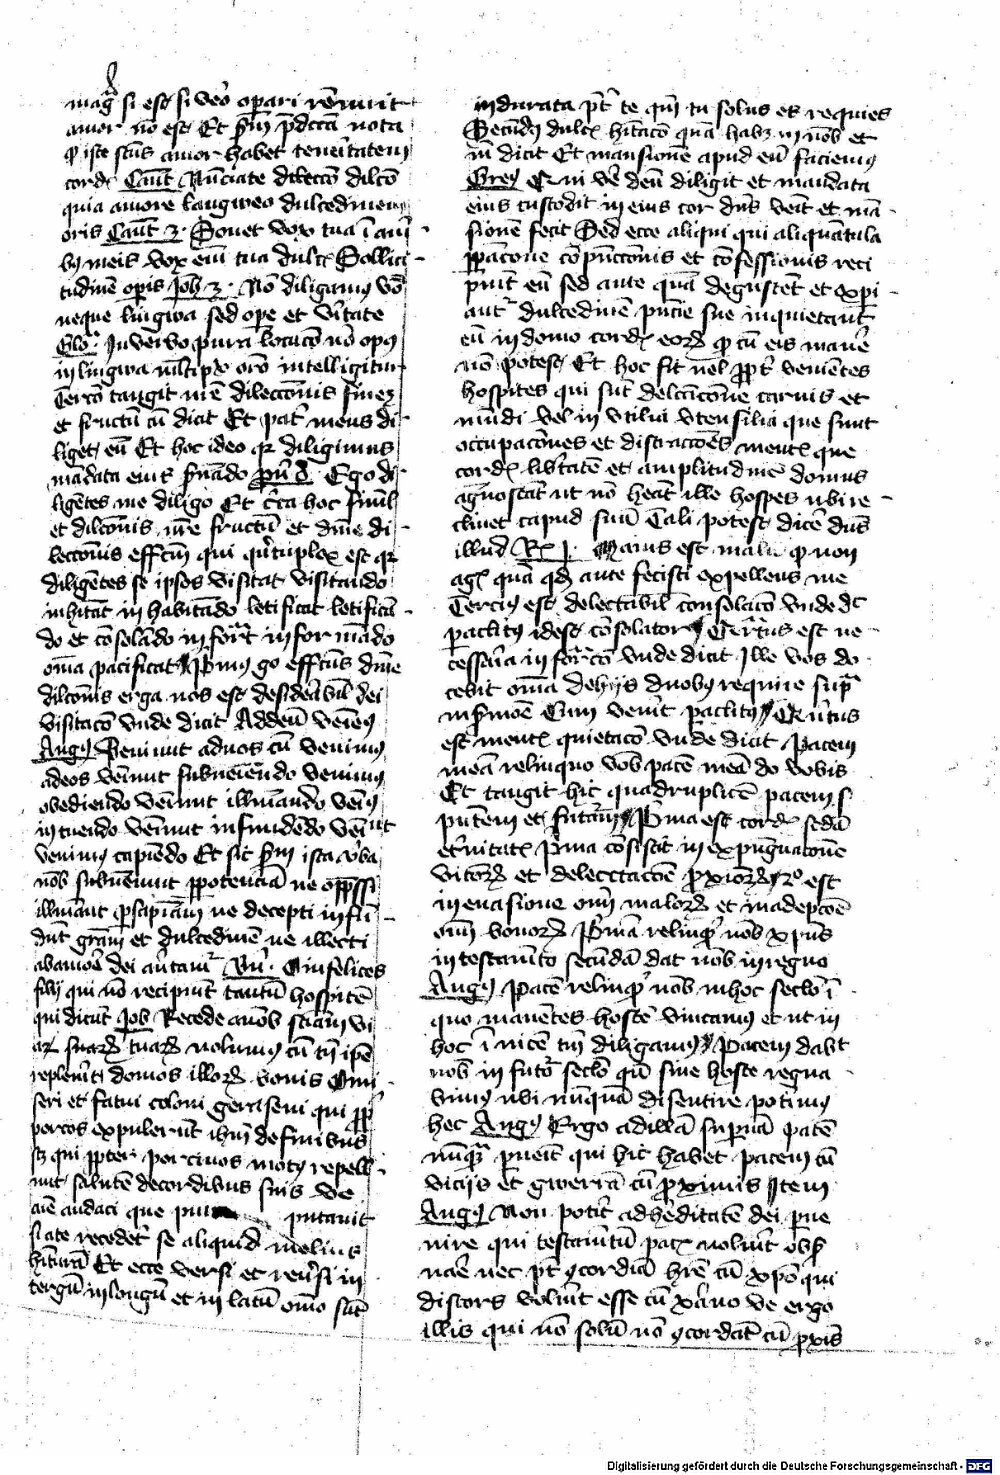 magna si est si vero operari rennuit
amor non est Et secundum predicta nota
quod iste sanctus amor habet teneritatem
cordis Cant Nunciate dilecto dilecto
quia amore langweo dulcedinem
oris Cant 2. Sonet vox tua in auri
bus meis vox enim tua dulcis Sollici
tudinem operis Job 3. Non diligamus verbo
neque lingwa sed opere et veritate
Glo. In verbo pura locucio non opus
in lingwa multiplex oratio intelligitur
Tercio tangit nostre dilectionis finem
et fructum cum dicit Et pater meus di
liget eum Et hoc ideo quia diligimus
mandata eius servando prov 8. Ego di
ligentes me diligo Et circa hoc simul
et dilectionis nostre fructum et divine di
lectionis effectum qui quintuplex est quia
diligentes se ipsos visitat visitando
inhitat inhabitando letificat letifican
do et consolando informat informando
omnia pacificat Primus ergo effectus divine
dilectionis erga nos est desiderabilis dei
visitacio unde dicit Ad deum veniemus
Augus Veniunt ad nos cum venimus
ad eos veniunt subveniendo venimus
obediendo veniunt illuminando venimus
intuendo veniunt infundendo veniunt
venimus capiendo Et sic secundum ista verba
nobis subveniunt per potenciam ne oppressi
illuminant per sapienciam ne decepti infun
dunt graciam et dulcedinem ne illecti
ab amore dei avertamur O infelices
filii qui non recipiunt tantum hospitem
qui dicunt Job Recede a nobis scienciam vi
arum tuarum nolumus cum tamen ipse
repleverit domos illorum bonis O mi
seri et fatui coloni geraseni qui propter
porcos expulerunt ihesum de finibus
qui propter porcinos motus repell
unt salutem de cordibus suis ve
anime audaci que putavit
si a te recederet se aliquid melius
habituram Et ecce versi et reversi in
tergum in longum et in latum omnino sunt
indurata preter te quoniam tu solus es requies
Secundus dulcis habitacio quam habet in nobis et
inde dicit Et mansionem apud eum faciemus
Greg Qui vere deum diligit et mandata
eius custodit in eius cor dominus venit et man
sionem fecit Sed ecce aliqui qui aliquantula
preparacione compunctionis et confessionis reci
piunt eum sed ante quam degustent et experi
antur dulcedinem presencie sue inquietant
eum in domo cordis eorum quod cum eis manere
non potest Et hoc fit vel propter venientes
hospites qui sunt delectacione carnis et
mundi vel inutilia utensilia que sunt
occupaciones et distracciones mentis que
cordis libertatem et amplitudinem domus
angustant ut non habeat ille hospes ubi re
clinet capud suum Tali potest dicere dominus
illud Rg Maius est malum quod non
agis quam quod ante fecisti expellens me
Tercius est delectabilis consolacio unde dicitur
paraclitus idest consolator Quartus est ne
cessaria informacio unde dicit Ille vos do
cebit omnia de hiis duobus require supra
in sermone Cum venerit paraclitus Quintus
est mentis quietacio unde dicit Pacem
meam relinquo vobis pacem meam do vobis
Et tangit hic quadruplicem pacem scilicet
presentem et futuram Prima est cordis secunda
eternitatis Prima consistit in expugnacione
viciorum et delectacione proximorum 2a est
in evasione omnium malorum et in adepcione
omnium bonorum Primam relinquit nobis Christus
in testamento secundam dat nobis in regno
Augus Pacem relinquit nobis in hoc seculo in
quo manentes hostem vincamus et ut in
hoc invicem tamen diligamus Pacem dabit
nobis in futuro seculo quando sine hoste regna
bimus ubi nunquam disentire poterimus
hec Augus Ergo ad illam supernam pacem
nunquam perveniet qui hic habet pacem cum
viciis et gwerram cum proximis Item
Augus Non poterit ad hereditatem dei perve
nire qui testamentum pacis noluerit obser
vare nec potest concordiam habere cum Christo qui
discors voluerit esse cum christiano ve ergo
illis qui non solum non concordant cum proximis
Digitalisierung gefördert durch die Deutsche Forschungsgemeinschaft - DFG